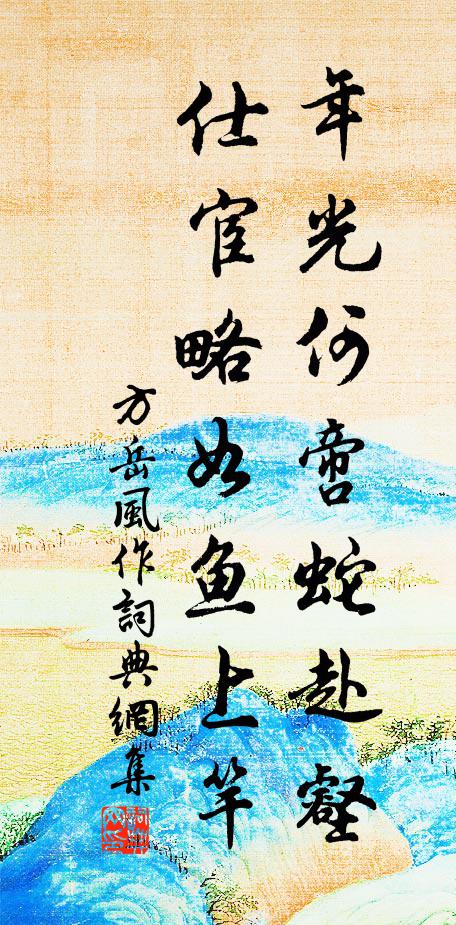 年光何啻蛇赴壑
仕宦略如鱼上竿
方岳風作詞典網集